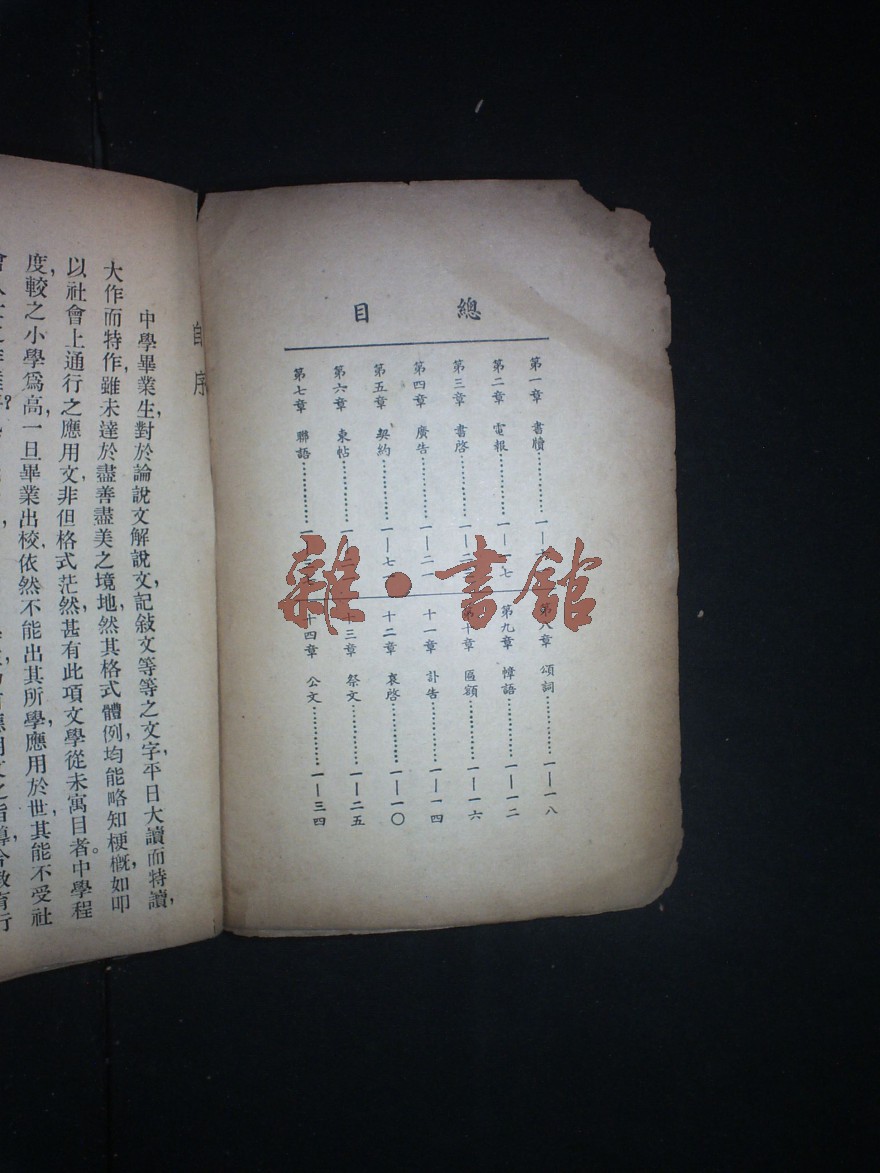 總目
第一章 書牘…………一—
第二章 電報…………一—一七
第三章 書啓…………一—二
第四章 廣告…………一—二一
第五章 契約…………一—七一
第六章 柬帖…………一
第七章 聯語…………一
第八章 頌詞…………一—一八
第九章 幛語…………一—一二
第十章 匾額…………一—一六
十一章 訃告…………一—一四
十二章 哀啓…………一—一〇
十三章 祭文…………一—二五
十四章 公文…………一—三四
雜·書館
自序
中學畢業生,對於論說文解說文,記敍文等等之文字,平日大讀而特讀,
大作而特作,雖未達於盡善盡美之境地,然其格式體例,均能略知梗概,如叩
以社會上通行之應用文,非但格式茫然,甚有此項文學從未寓目者。中學程
度,較之小學爲高,一旦畢業出校,依然不能出其所學,應用於世,其能不受社